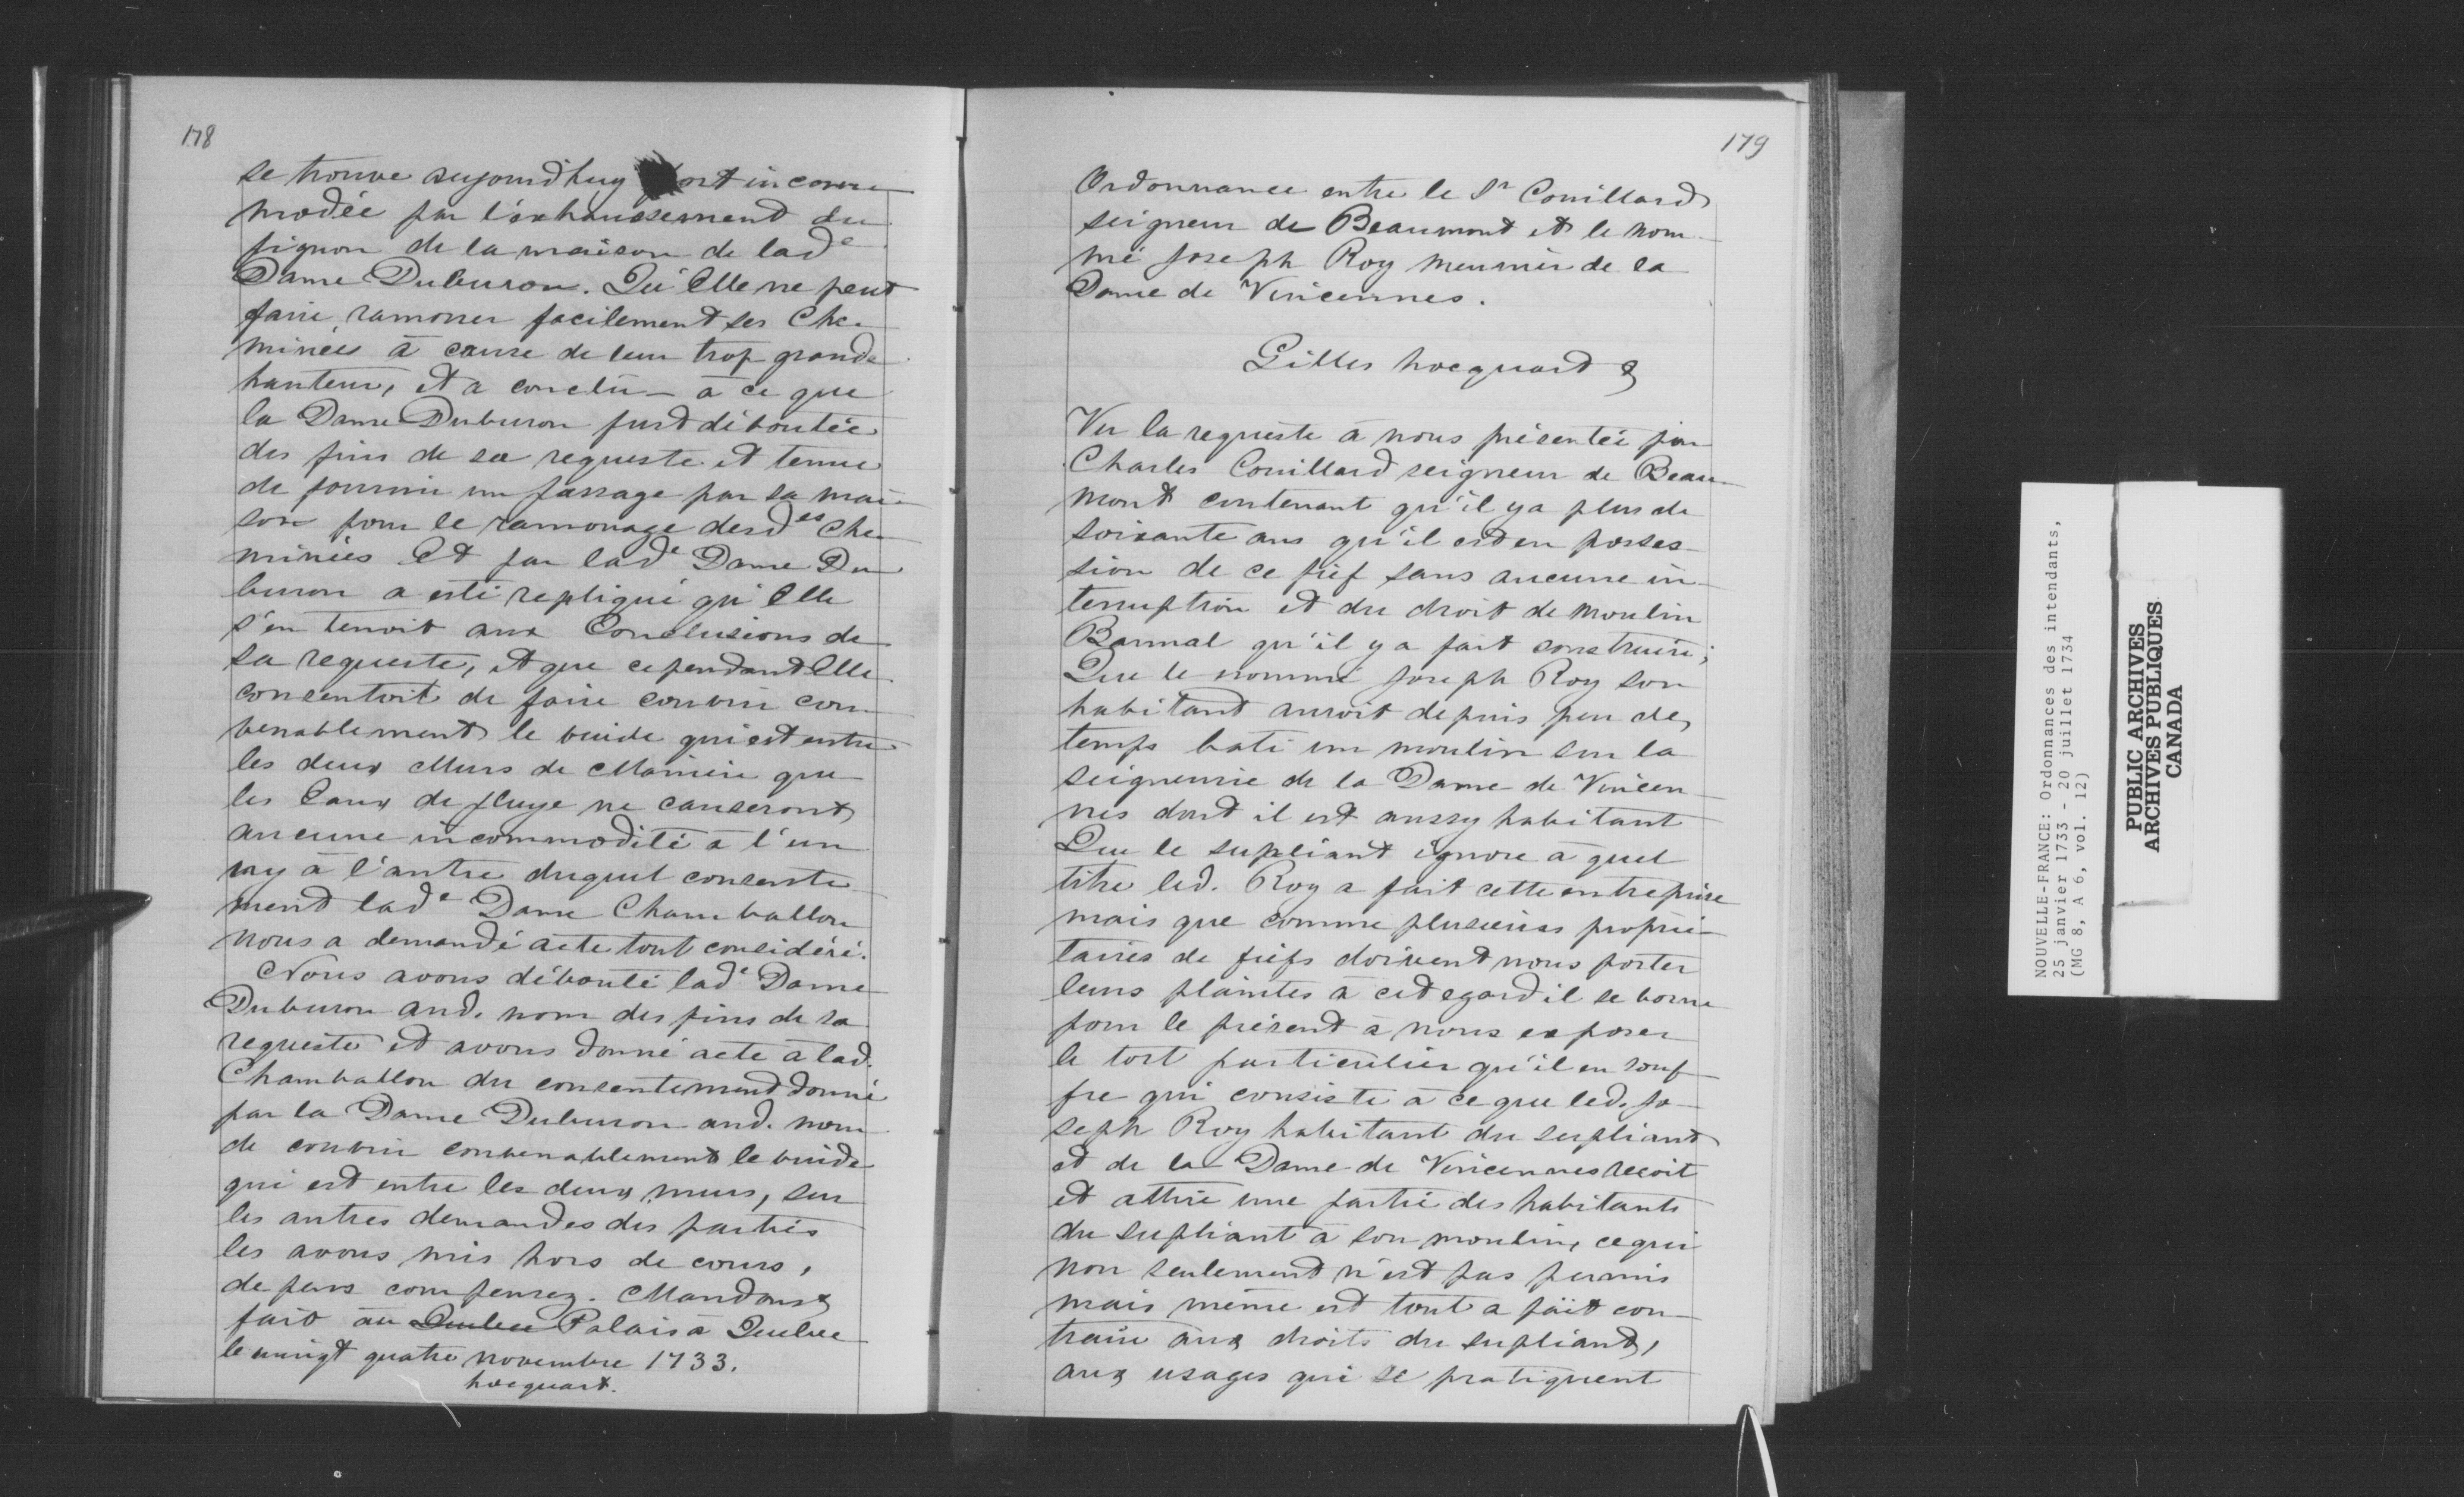 178
se trouve aujourdhuy fort incom-
modée par l'exhaussement du
pignon de la maison de lade
Dame Duburon. Qu'Elle ne peut
faire ramoner facilement ses Che-
minées à cause de leur trop grande
hauteur, et a conclu à ce que
la Dame Duburon fust déboutée
des fins de sa requeste et tenue
de fournir un passage par sa mai-
son pour le ramonage desdes Che-
minées Et par lade Dame Du
buron a esté repliqué qu'Elle
s'en tenoit aux Conclusions de
sa requeste, et que cependant Elle
consentoit de faire couvrir con-
venablement le vuide qui est entre
les deux Murs de Maniere que
les Eaux de pluye ne causeront
aucune incommodité à l'un
ny à l'autre duquel consente-
ment lade Dame Chamballon
nous a demandé acte tout considéré.
Nous avons débouté lade Dame
Duburon aud. nom des fins de sa
requeste et avons donné acte à lad.
Chamballon du consentement donné
par la Dame Duburon aud. nom
de couvrir convenablement le vuide
qui est entre les deux murs, sur
les autres demandes des parties
les avons mis hors de cours,
depens compensez. Mandons &
fait au Quebec Palais a Quebec
le vingt quatre novembre 1733.
hocquart.
179
Ordonnance entre le Sr Couillard
seigneur de Beaumont et le nom-
mé Joseph Roy meunier de la
Dame de Vincennes.
Gilles hocquart &
Vu la requeste à nous présentée par
Charles Couillard seigneur de Beau-
mont contenant qu'il y a plus de
soixante ans qu'il est en posses-
sion de ce fief sans aucune in-
terruption et du droit de moulin
Bannal qu'il y a fait construire;
Que le nommé Joseph Roy son
habitant auroit depuis peu de
temps bati un moulin sur la
seigneurie de la Dame de Vincen-
nes dont il est aussy habitant
Que le supliant ignore à quel
titre led. Roy a fait cette entreprise
mais que comme plusieurs proprié-
taires de fiefs doivent nous porter
leurs plaintes à cet egard il se borne
pour le présent à nous exposer
le tort particulier qu'il en souf-
fre qui consiste à ce que led. Jo-
seph Roy habitant du supliant
et de la Dame de Vincennes reçoit
et attire une partie des habitants
du supliant à son moulin, ce qui
non seulement n'est pas permis
mais même est tout a fait con-
traire aux droits du supliant,
aux usages qui se pratiquent
NOUVELLE-FRANCE: Ordonnances des intendants,
25 janvier 1733 - 20 juillet 1734
(MG 8, A 6, vol. 12)
PUBLIC ARCHIVES
ARCHIVES PUBLIQUES
CANADA